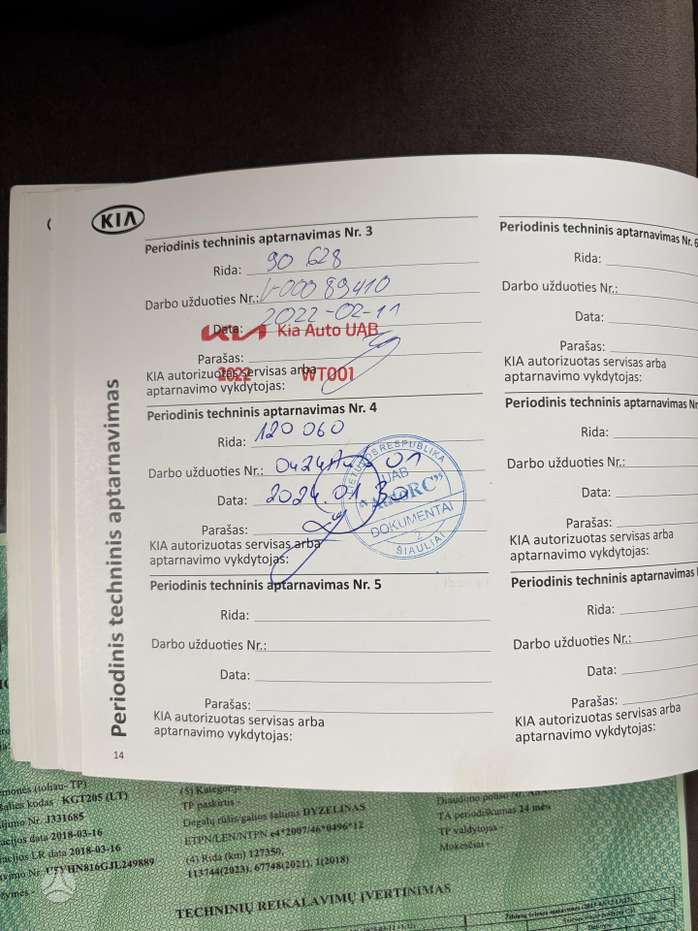 KIA
Periodinis techninis aptarnavimas
Periodinis techninis aptarnavimas Nr. 3
Rida: 90 628
Darbo užduoties Nr.: 89410
Data: 2022-02-11
KIA Kia Auto UAB
Parašas:
2022 WT001
KIA autorizuotas servisas arba
aptarnavimo vykdytojas:
Periodinis techninis aptarnavimas Nr. 4
Rida: 120 060
Darbo užduoties Nr.: 01
Data: 2024.01.30
Parašas:
KIA autorizuotas servisas arba
aptarnavimo vykdytojas:
LIETUVOS RESPUBLIKA
UAB
DOKUMENTAI
2
ŠIAULIAI
Periodinis techninis aptarnavimas Nr. 5
Rida:
Darbo užduoties Nr.:
Data:
Parašas:
KIA autorizuotas servisas arba
aptarnavimo vykdytojas:
14
Periodinis techninis aptarnavimas Nr. 6
Rida:
Darbo užduoties Nr.:
Data:
Parašas:
KIA autorizuotas servisas arba
aptarnavimo vykdytojas:
Periodinis techninis aptarnavimas Nr
Rida:
Darbo užduoties Nr.:
Data:
Parašas:
KIA autorizuotas servisas arba
aptarnavimo vykdytojas:
Periodinis techninis aptarnavimas
Rida:
Darbo užduoties Nr.:
Data:
Parašas:
KIA autorizuotas servisas arba
aptarnavimo vykdytojas:
monės (toliau- TP)
šalies kodas KGT205 (LT)
ijimo Nr. J331685
acijos data 2018-03-16
acijos LR data 2018-03-16
(5) Kategorija
TP paskirtis -
Degalų rūšis/galios šaltinis DYZELINAS
ETPN/LEN/NTPN e4*2007/46*0496*12
(4) Rida (km) 127350,
113744(2023), 67748(2021), 1(2018)
TA periodiškumas 24 mėn
TP valdytojas -
Mokesčiai -
TECHNINIŲ REIKALAVIMŲ ĮVERTINIMAS